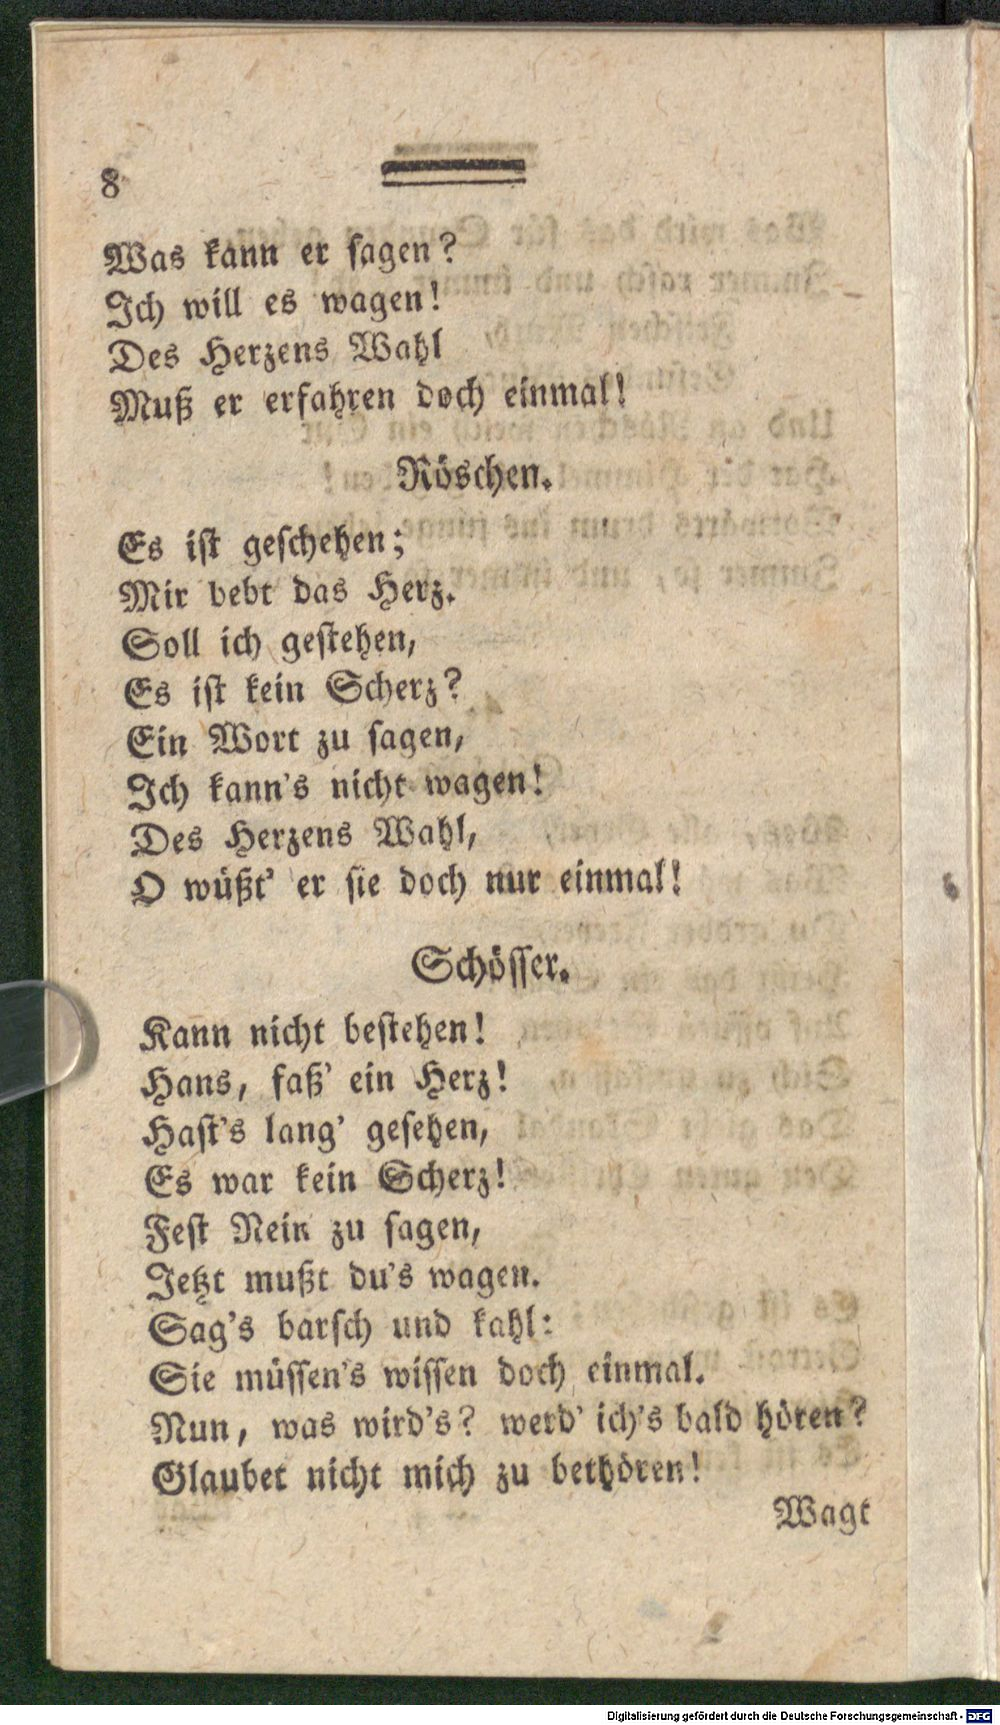 8
Was kann er sagen?
Ich will es wagen!
Des Herzens Wahl
Muß er erfahren doch einmal!
Röschen.
Es iſt geſchehen;
Mir bebt das Herz.
Soll ich geſtehen,
Es iſt kein Scherz?
Ein Wort zu ſagen,
Ich kann's nicht wagen!
Des Herzens Wahl,
O wüßt' er ſie doch nur einmal!
Schöſſer.
Kann nicht beſtehen!
Hans, faß' ein Herz!
Haſt's lang' geſehen,
Es war kein Scherz!
Feſt Nein zu ſagen,
Jetzt mußt du's wagen.
Sag's barſch und kahl:
Sie müſſen's wiſſen doch einmal.
Nun, was wird's? werd' ich's bald hören?
Glaubet nicht mich zu bethören!
Wagt
Digitalisierung gefördert durch die Deutsche Forschungsgemeinschaft - DFG